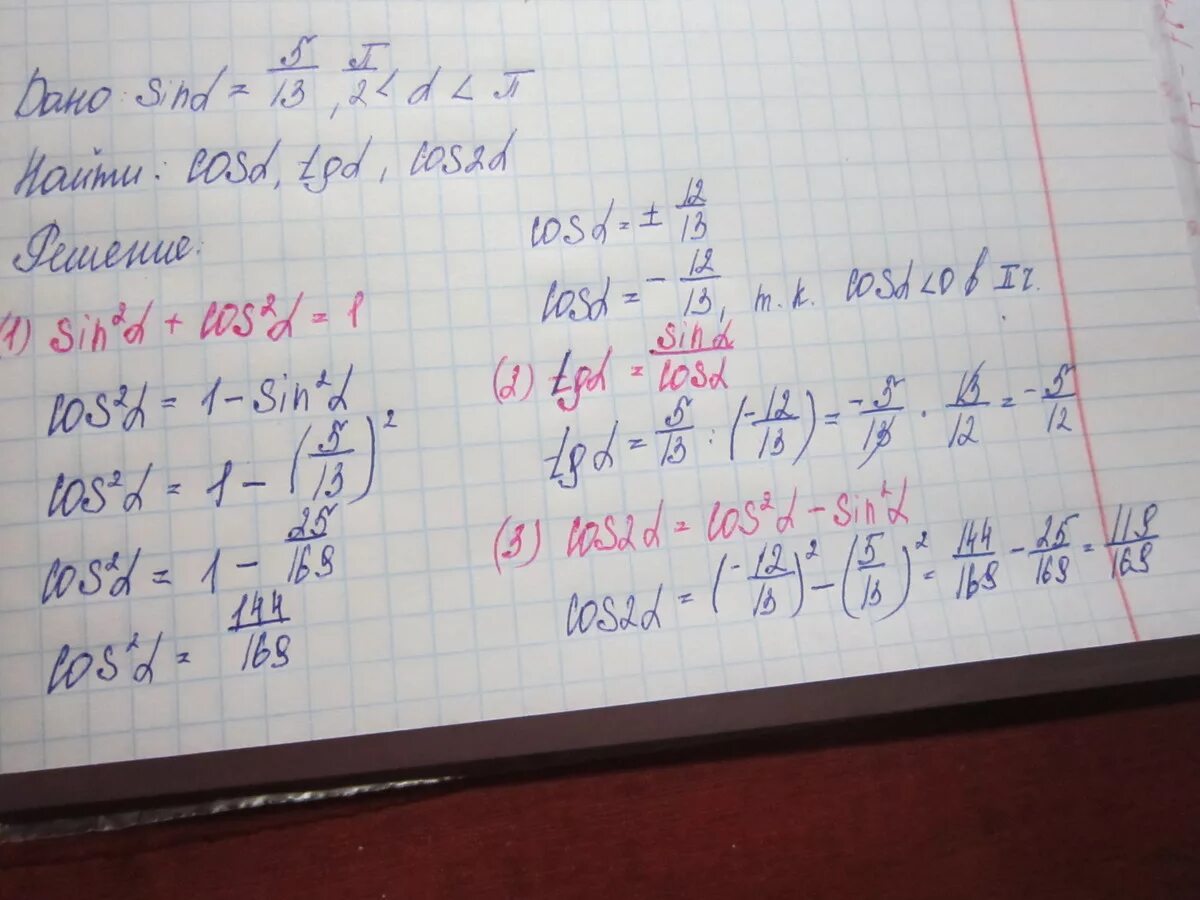 Дано: sinα = 5/13, π/2 < α < π
Найти: cosα, tgα, cos2α
Решение:
(1) sin²α + cos²α = 1
cos²α = 1 - sin²α
cos²α = 1 - (5/13)²
cos²α = 1 - 25/169
cos²α = 144/169
cosα = ± 12/13
cosα = - 12/13, т.к. cosα < 0 в II ч.
(2) tgα = sinα/cosα
tgα = 5/13 : (-12/13) = -5/13 · 13/12 = -5/12
(3) cos2α = cos²α - sin²α
cos2α = (-12/13)² - (5/13)² = 144/169 - 25/169 = 119/169